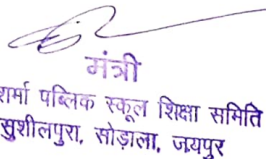 मंत्री
शर्मा पब्लिक स्कूल शिक्षा समिति
सुशीलपुरा, सोड़ाला, जयपुर